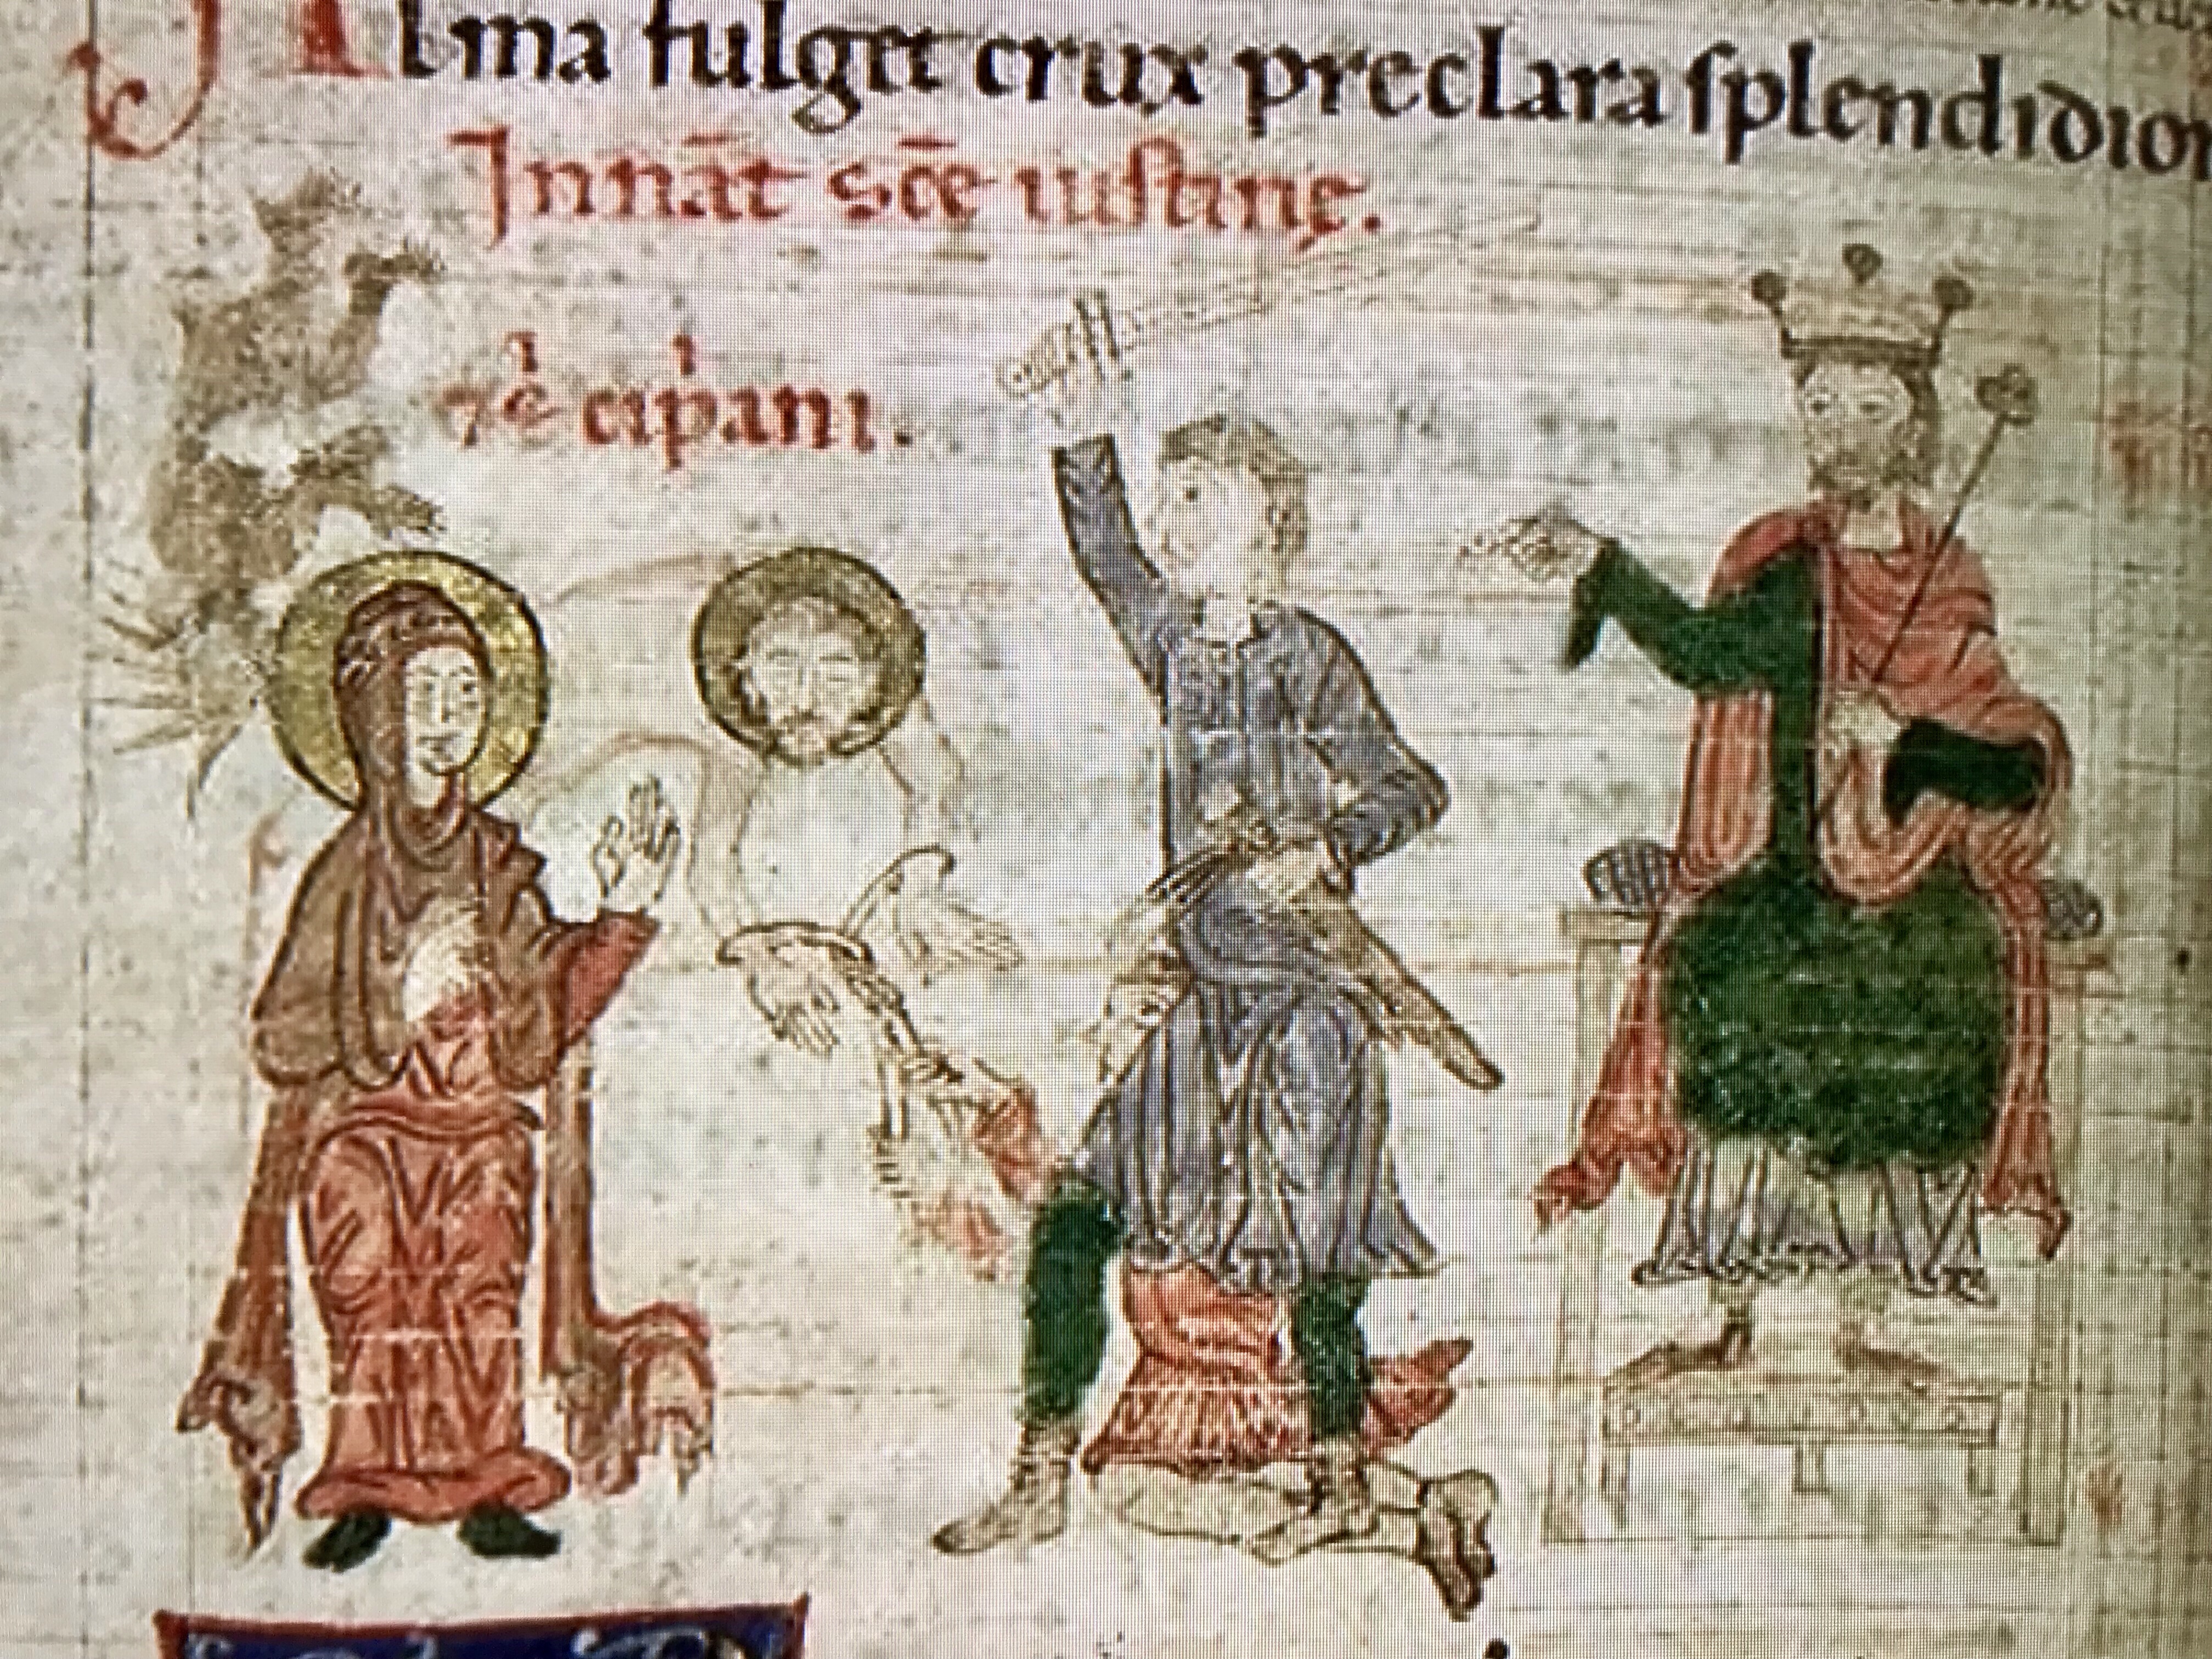 Alma fulget crux preclara ſplendidior
In nāt sc̄e iuſtine.
⁊ cipani.